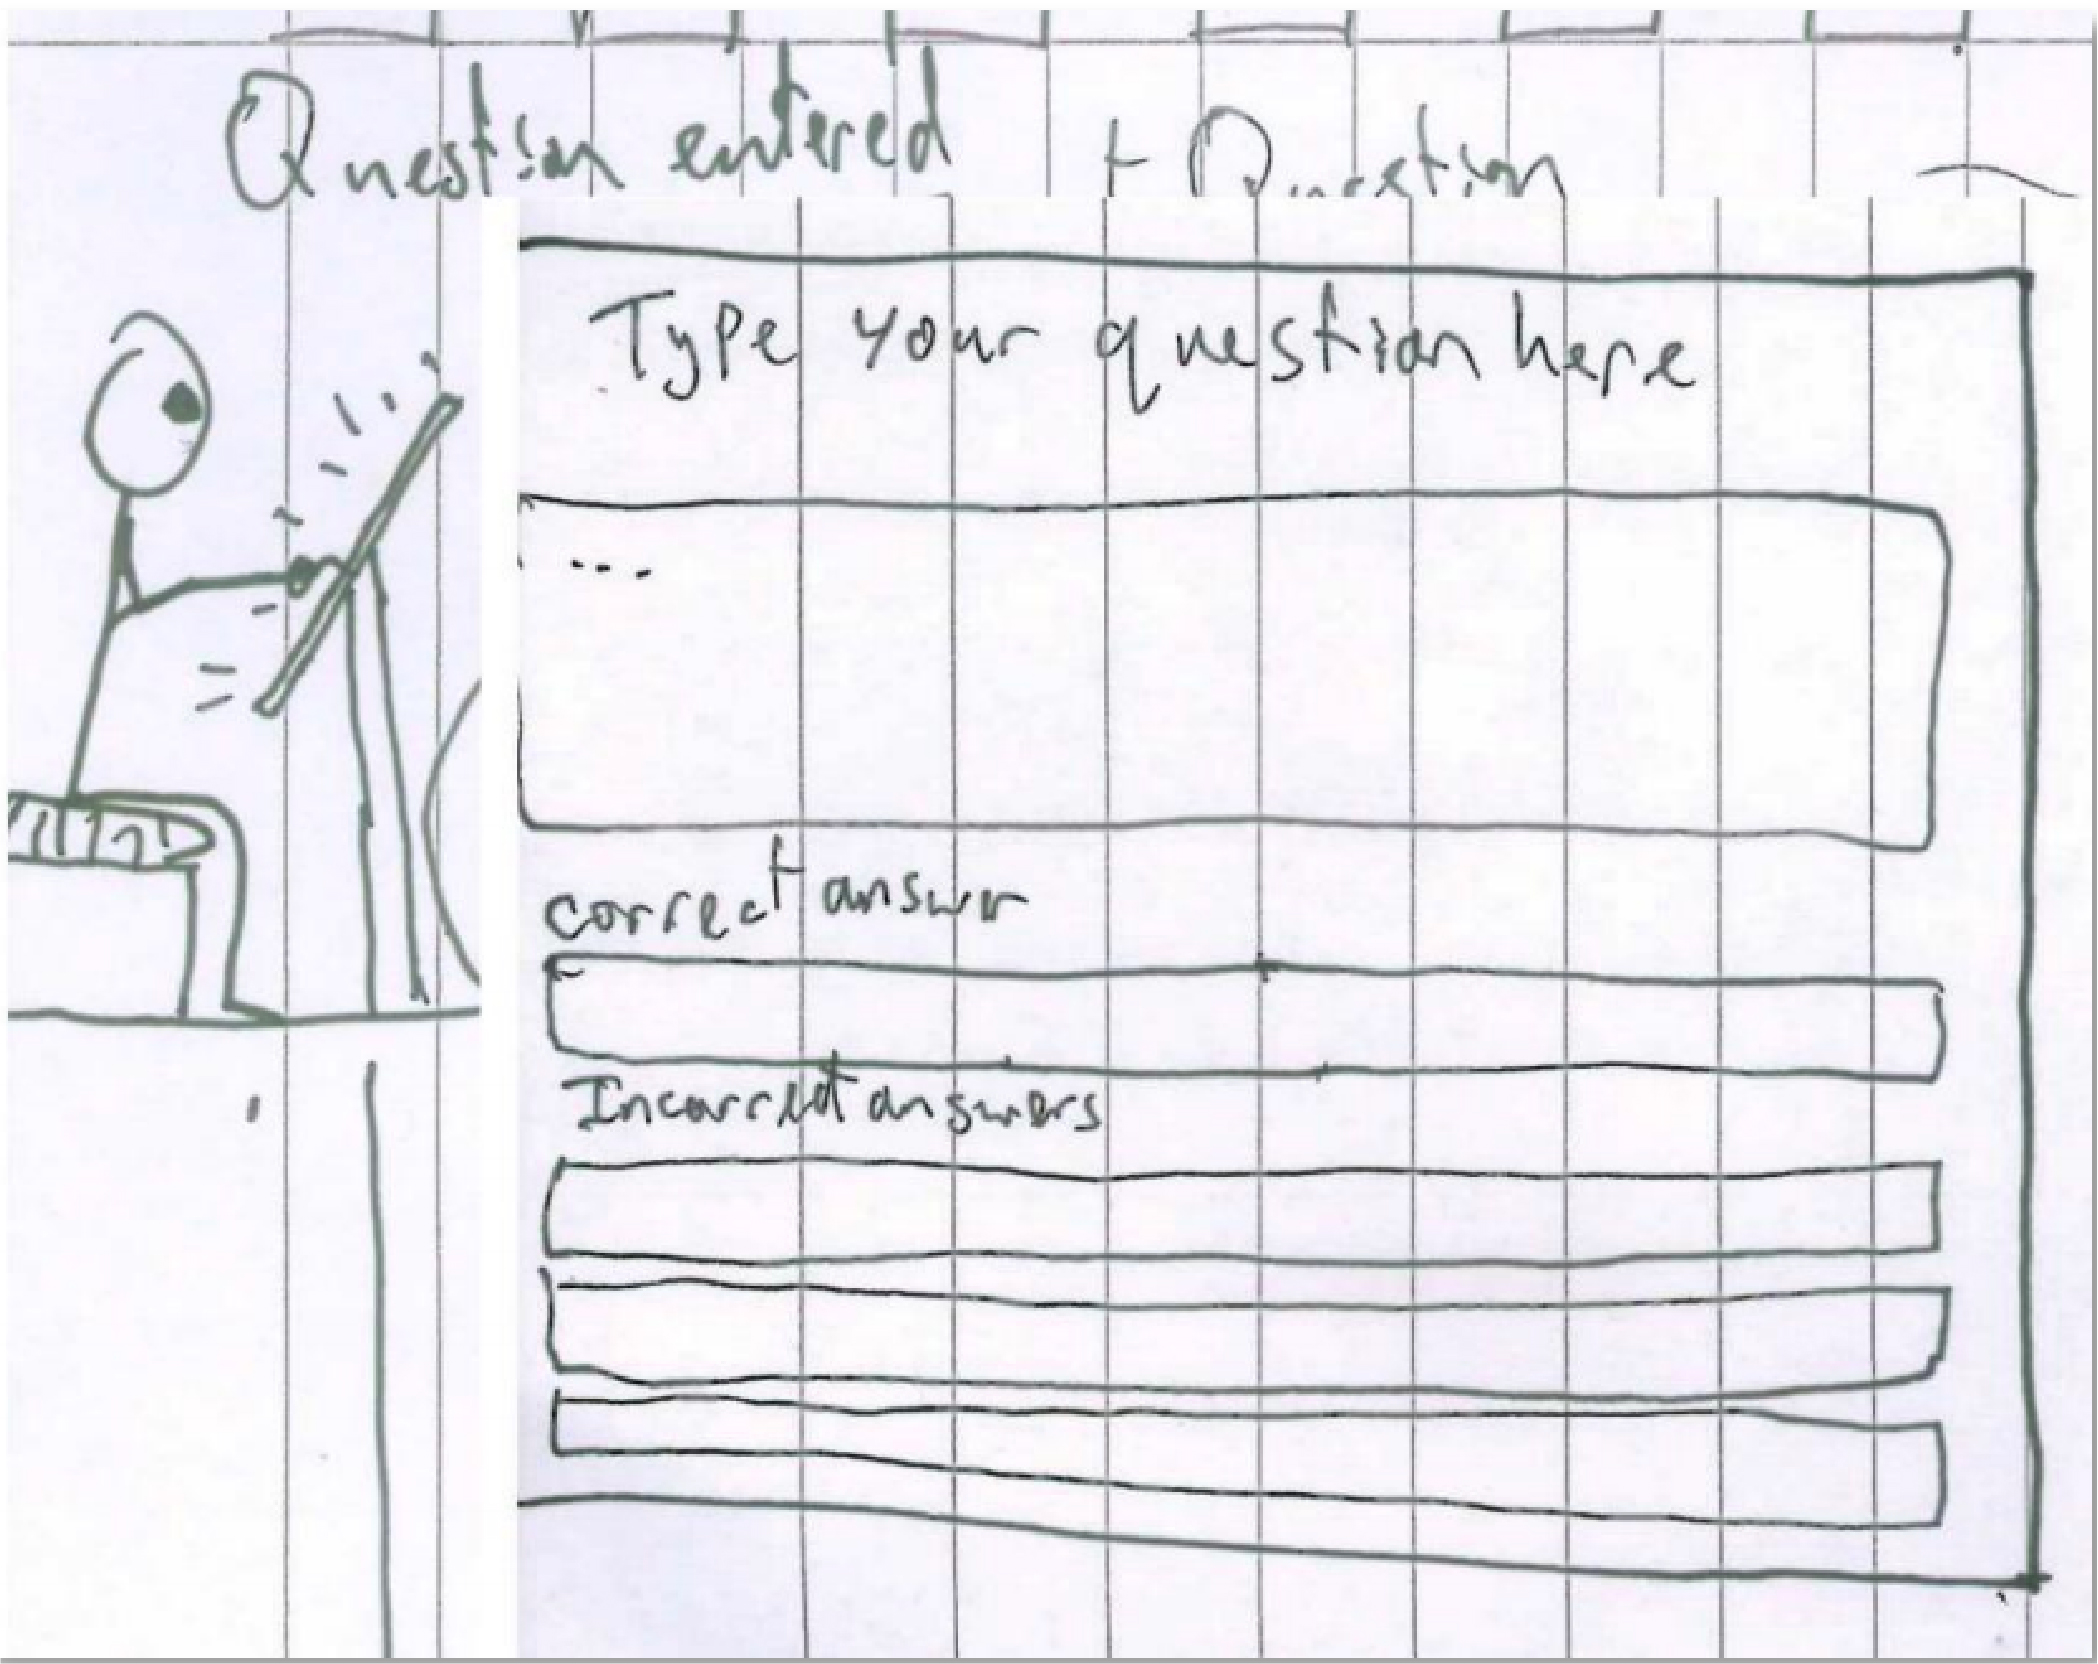 Question entered + Question
Type your question here
...
correct answer
Incorrect answers